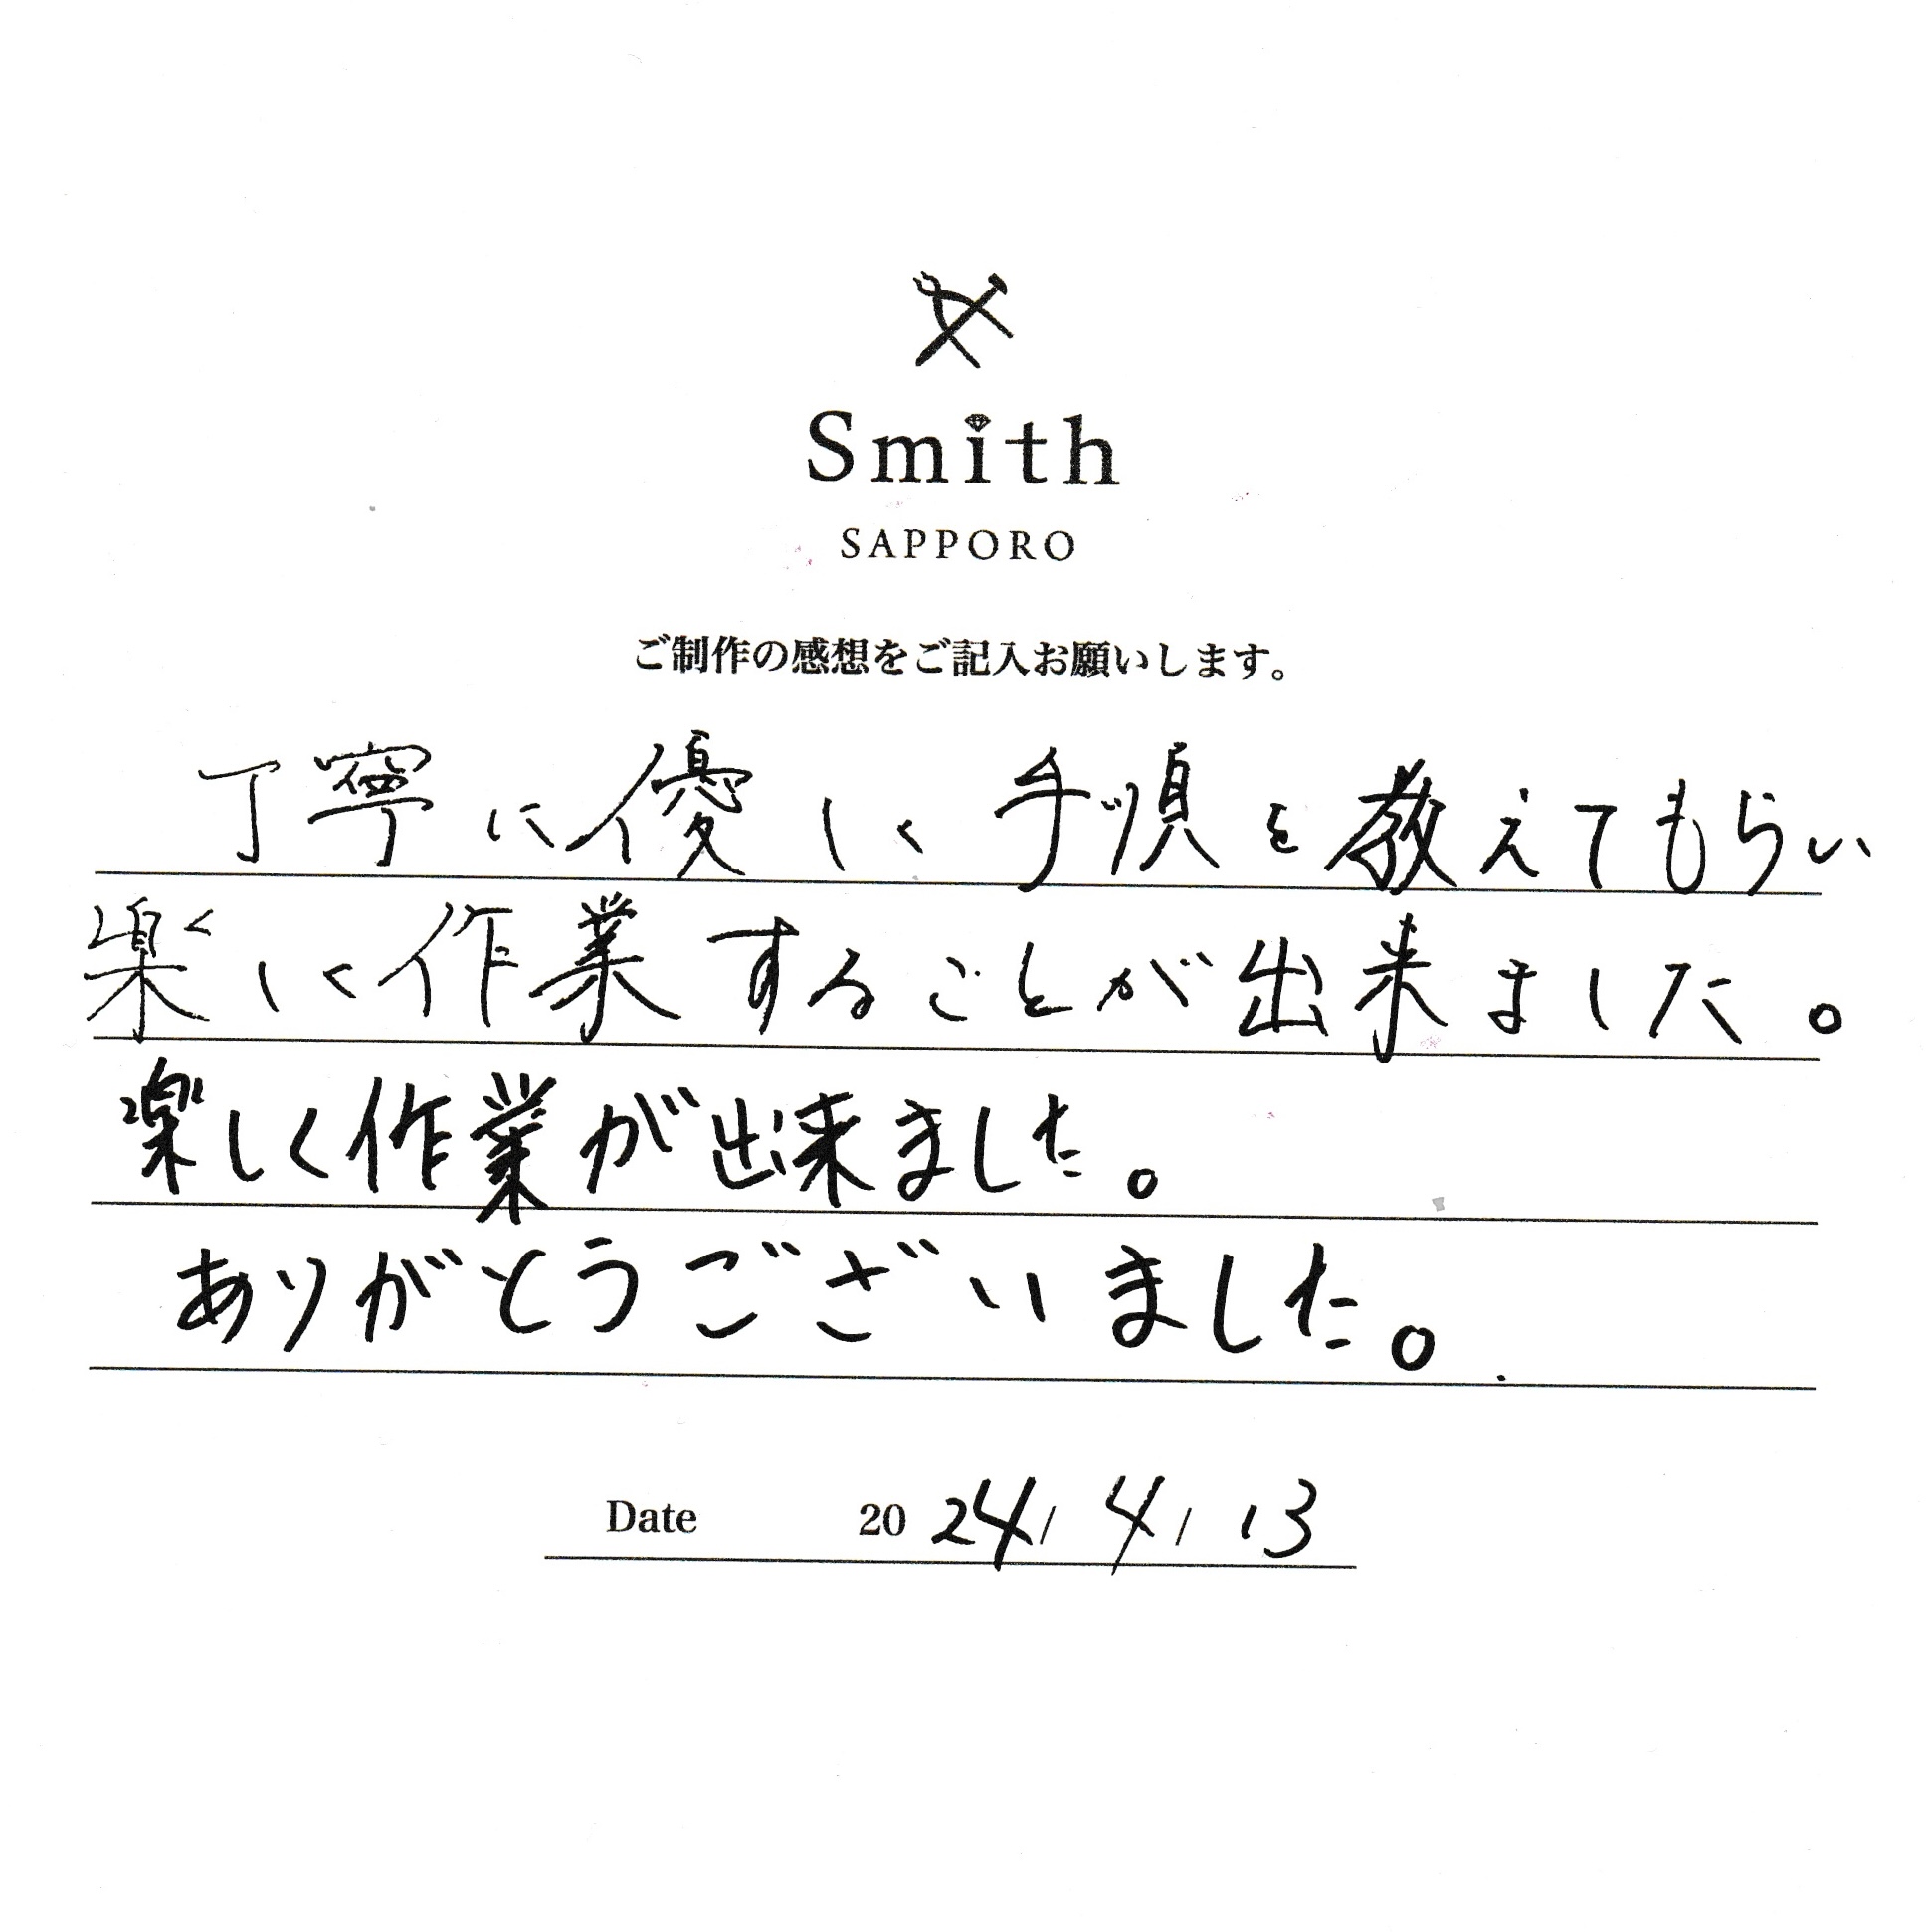 Smith
SAPPORO
ご制作の感想をご記入お願いします。
丁寧に優しく手順を教えてもらい
楽しく作業することが出来ました。
楽しく作業が出来ました。
ありがとうございました。
Date 2024/4/13